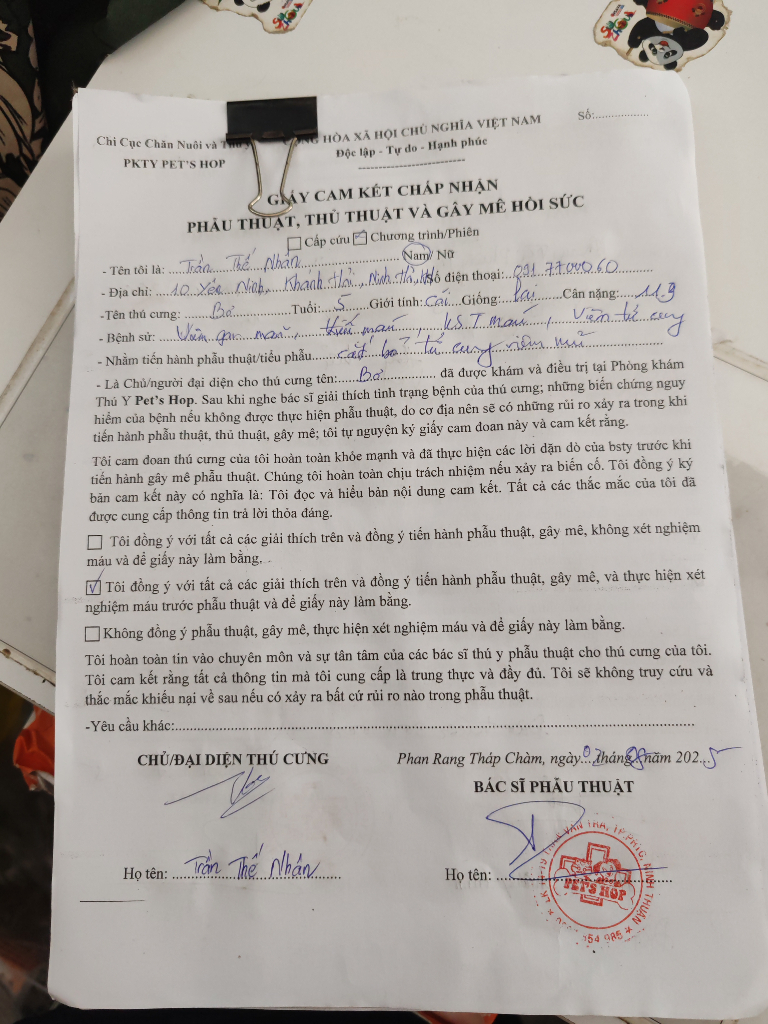 Chi Cục Chăn Nuôi và Thú y
CỘNG HÒA XÃ HỘI CHỦ NGHĨA VIỆT NAM
Số:.................
PKTY PET'S HOP
Độc lập - Tự do - Hạnh phúc
GIẤY CAM KẾT CHẤP NHẬN
PHẪU THUẬT, THỦ THUẬT VÀ GÂY MÊ HỒI SỨC
Cấp cứu Chương trình/Phiên
- Tên tôi là: Trần Thế Nhân Nam/ Nữ
- Địa chỉ: 10 Ninh, Khánh Hải, Ninh Hải, Số điện thoại: 091 7700060
-Tên thú cưng: Bơ Tuổi: 5 Giới tính: Cái Giống: lai Cân nặng: 11.9
- Bệnh sử: Viêm gan, thiếu máu, KST máu, Viêm tử cung
- Nhằm tiến hành phẫu thuật/tiểu phẫu cắt bỏ tử cung viêm mủ
- Là Chủ/người đại diện cho thú cưng tên: Bơ đã được khám và điều trị tại Phòng khám
Thú Y Pet's Hop. Sau khi nghe bác sĩ giải thích tình trạng bệnh của thú cưng; những biến chứng nguy
hiểm của bệnh nếu không được thực hiện phẫu thuật, do cơ địa nên sẽ có những rủi ro xảy ra trong khi
tiến hành phẫu thuật, thủ thuật, gây mê; tôi tự nguyện ký giấy cam đoan này và cam kết rằng.
Tôi cam đoan thú cưng của tôi hoàn toàn khỏe mạnh và đã thực hiện các lời dặn dò của bsty trước khi
tiến hành gây mê phẫu thuật. Chúng tôi hoàn toàn chịu trách nhiệm nếu xảy ra biến cố. Tôi đồng ý ký
bản cam kết này có nghĩa là: Tôi đọc và hiểu bản nội dung cam kết. Tất cả các thắc mắc của tôi đã
được cung cấp thông tin trả lời thỏa đáng.
Tôi đồng ý với tất cả các giải thích trên và đồng ý tiến hành phẫu thuật, gây mê, không xét nghiệm
máu và để giấy này làm bằng.
Tôi đồng ý với tất cả các giải thích trên và đồng ý tiến hành phẫu thuật, gây mê, và thực hiện xét
nghiệm máu trước phẫu thuật và để giấy này làm bằng.
Không đồng ý phẫu thuật, gây mê, thực hiện xét nghiệm máu và để giấy này làm bằng.
Tôi hoàn toàn tin vào chuyên môn và sự tận tâm của các bác sĩ thú y phẫu thuật cho thú cưng của tôi.
Tôi cam kết rằng tất cả thông tin mà tôi cung cấp là trung thực và đầy đủ. Tôi sẽ không truy cứu và
thắc mắc khiếu nại về sau nếu có xảy ra bất cứ rủi ro nào trong phẫu thuật.
-Yêu cầu khác:
CHỦ/ĐẠI DIỆN THÚ CƯNG
Phan Rang Tháp Chàm, ngày 07 tháng 08 năm 2025
BÁC SĨ PHẪU THUẬT
Họ tên: Trần Thế Nhân
Họ tên:
PET'S HOP